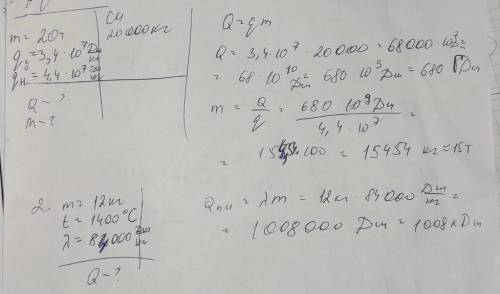 m = 20т
СИ
20 000 кг
q = 3,4 · 10⁷ Дж/кг
qн = 4,4 · 10⁷ Дж/кг
Q - ?
m - ?
Q = qm
Q = 3,4 · 10⁷ · 20000 = 68000 · 10⁷ =
= 68 · 10¹⁰ Дж = 680 · 10⁹ Дж = 680 ГДж
m = Q/q = 680 · 10⁹ Дж / 4,4 · 10⁷ =
= 100 = 15454 кг ≈ 15т
2. m = 12кг
t = 1400°C
λ = 84000 Дж/кг
Q - ?
Qпл = λm = 12кг · 84000 Дж/кг =
= 1008000 Дж = 1008 кДж